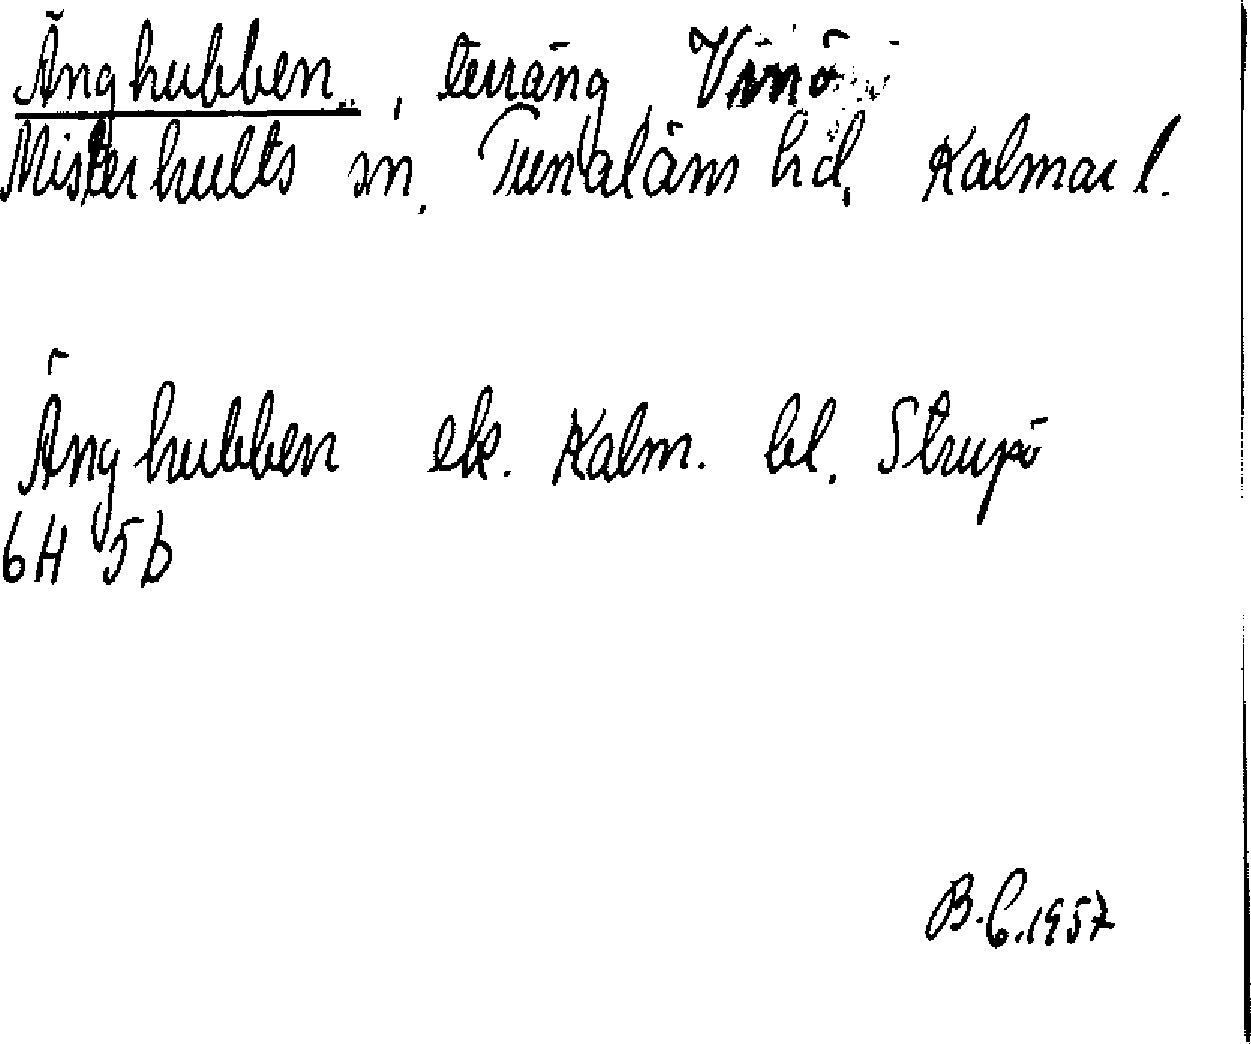 Änghubben, terräng Vinö
Misterhults sn, Tunaläns hd, Kalmar l.
Änghubben ek. Kalm. bl. Strupö
6H 5b
B.C.1957